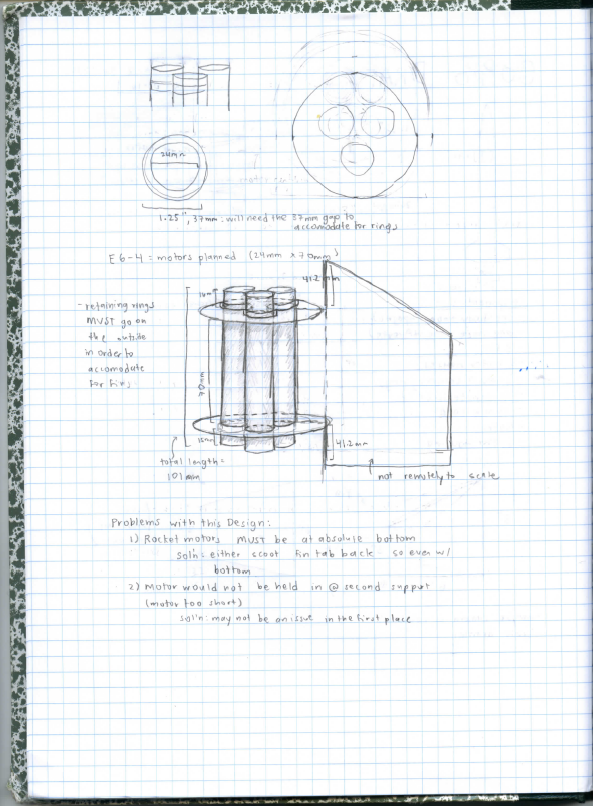 24mm
1.25", 37mm: will need the 37mm gap to
accomodate for rings
E6-4 = motors planned (24mm x 70mm)
41.2
- retaining rings
MUST go on
the outside
in order to
accomodate
for fins
70mm
15mm
41.2mm
total length =
101mm
not remotely to scale
Problems with this Design:
1) Rocket motors MUST be at absolute bottom
sol'n: either scoot fin tab back so even w/
bottom
2) motor would not be held in @ second support
(motor too short)
sol'n: may not be an issue in the first place